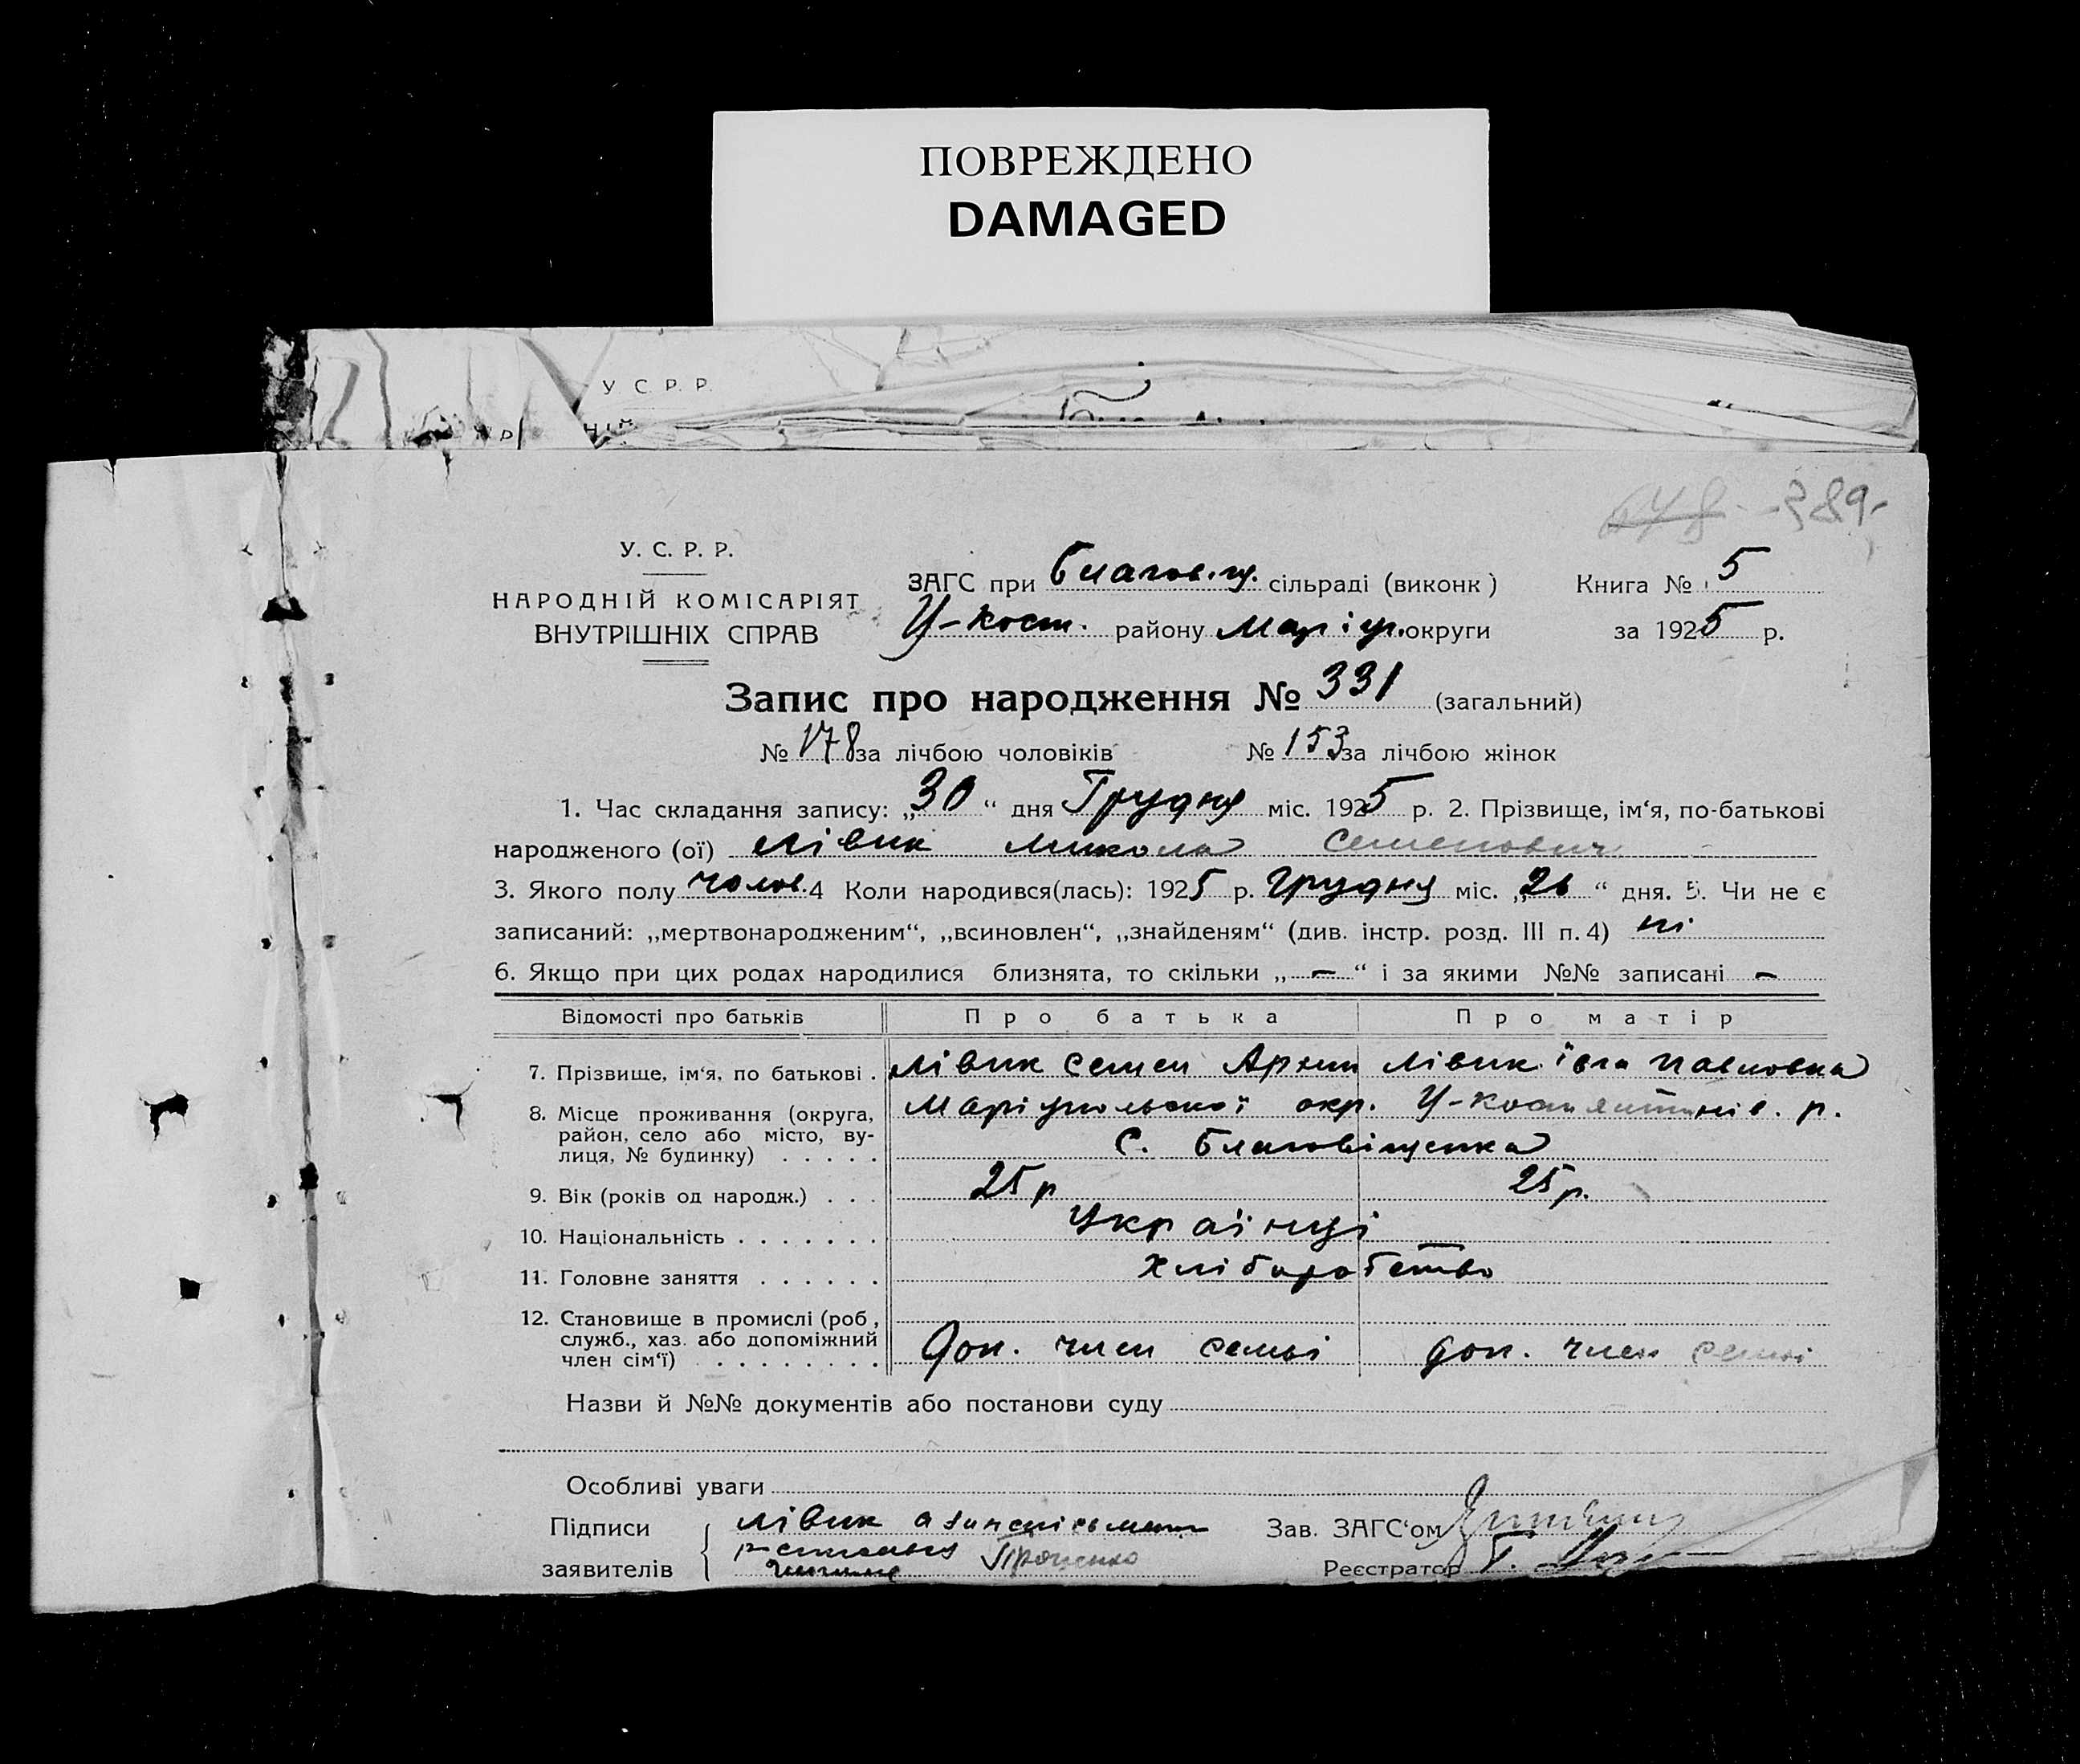 ПОВРЕЖДЕНО
DAMAGED
У С Р Р.
389
У. С. Р. Р.
НАРОДНІЙ КОМІСАРІЯТ
ВНУТРІШНІХ СПРАВ
ЗАГС при Благов.щ. сільраді (виконк) Книга № 5
У-Кост. району Маріуп. округи за 1925 р.
Запис про народження № 331 (загальний)
№ 178 за лічбою чоловіків № 153 за лічбою жінок
1. Час складання запису: „30“ дня Грудня міс. 1925 р. 2. Прізвище, ім‘я, по-батькові
народженого (ої) Лівик Микола Семенович
3. Якого полу чолов. 4 Коли народився(лась): 1925 р. Грудня міс. „26“ дня. 5. Чи не є
записаний: „мертвонародженим“, „всиновлен“, „знайденям“ (див. інстр. розд. III п. 4) ні
6. Якщо при цих родах народилися близнята, то скільки „–“ і за якими №№ записані –
Відомості про батьків Про батька Про матір
7. Прізвище, ім‘я, по батькові . Лівик Семен Лівик Івга Павловна
8. Місце проживання (округа, Маріупольської окр. У-Костянтинів. р.
район, село або місто, ву-
лиця, № будинку) . . . . . с. Благовіщенка
9. Вік (років од народж.) . . . 25 р 25 р.
10. Національність . . . . . . . Українці
11. Головне заняття . . . . . . Хліборобство
12. Становище в промислі (роб,
служб., хаз. або допоміжний
член сім‘ї) . . . . . . . . Доп. член семьі доп. член семьі
Назви й №№ документів або постанови суду
Особливі уваги
Підписи Лівик а Зав. ЗАГС‘ом
заявителів Проценко Реєстратор Г.